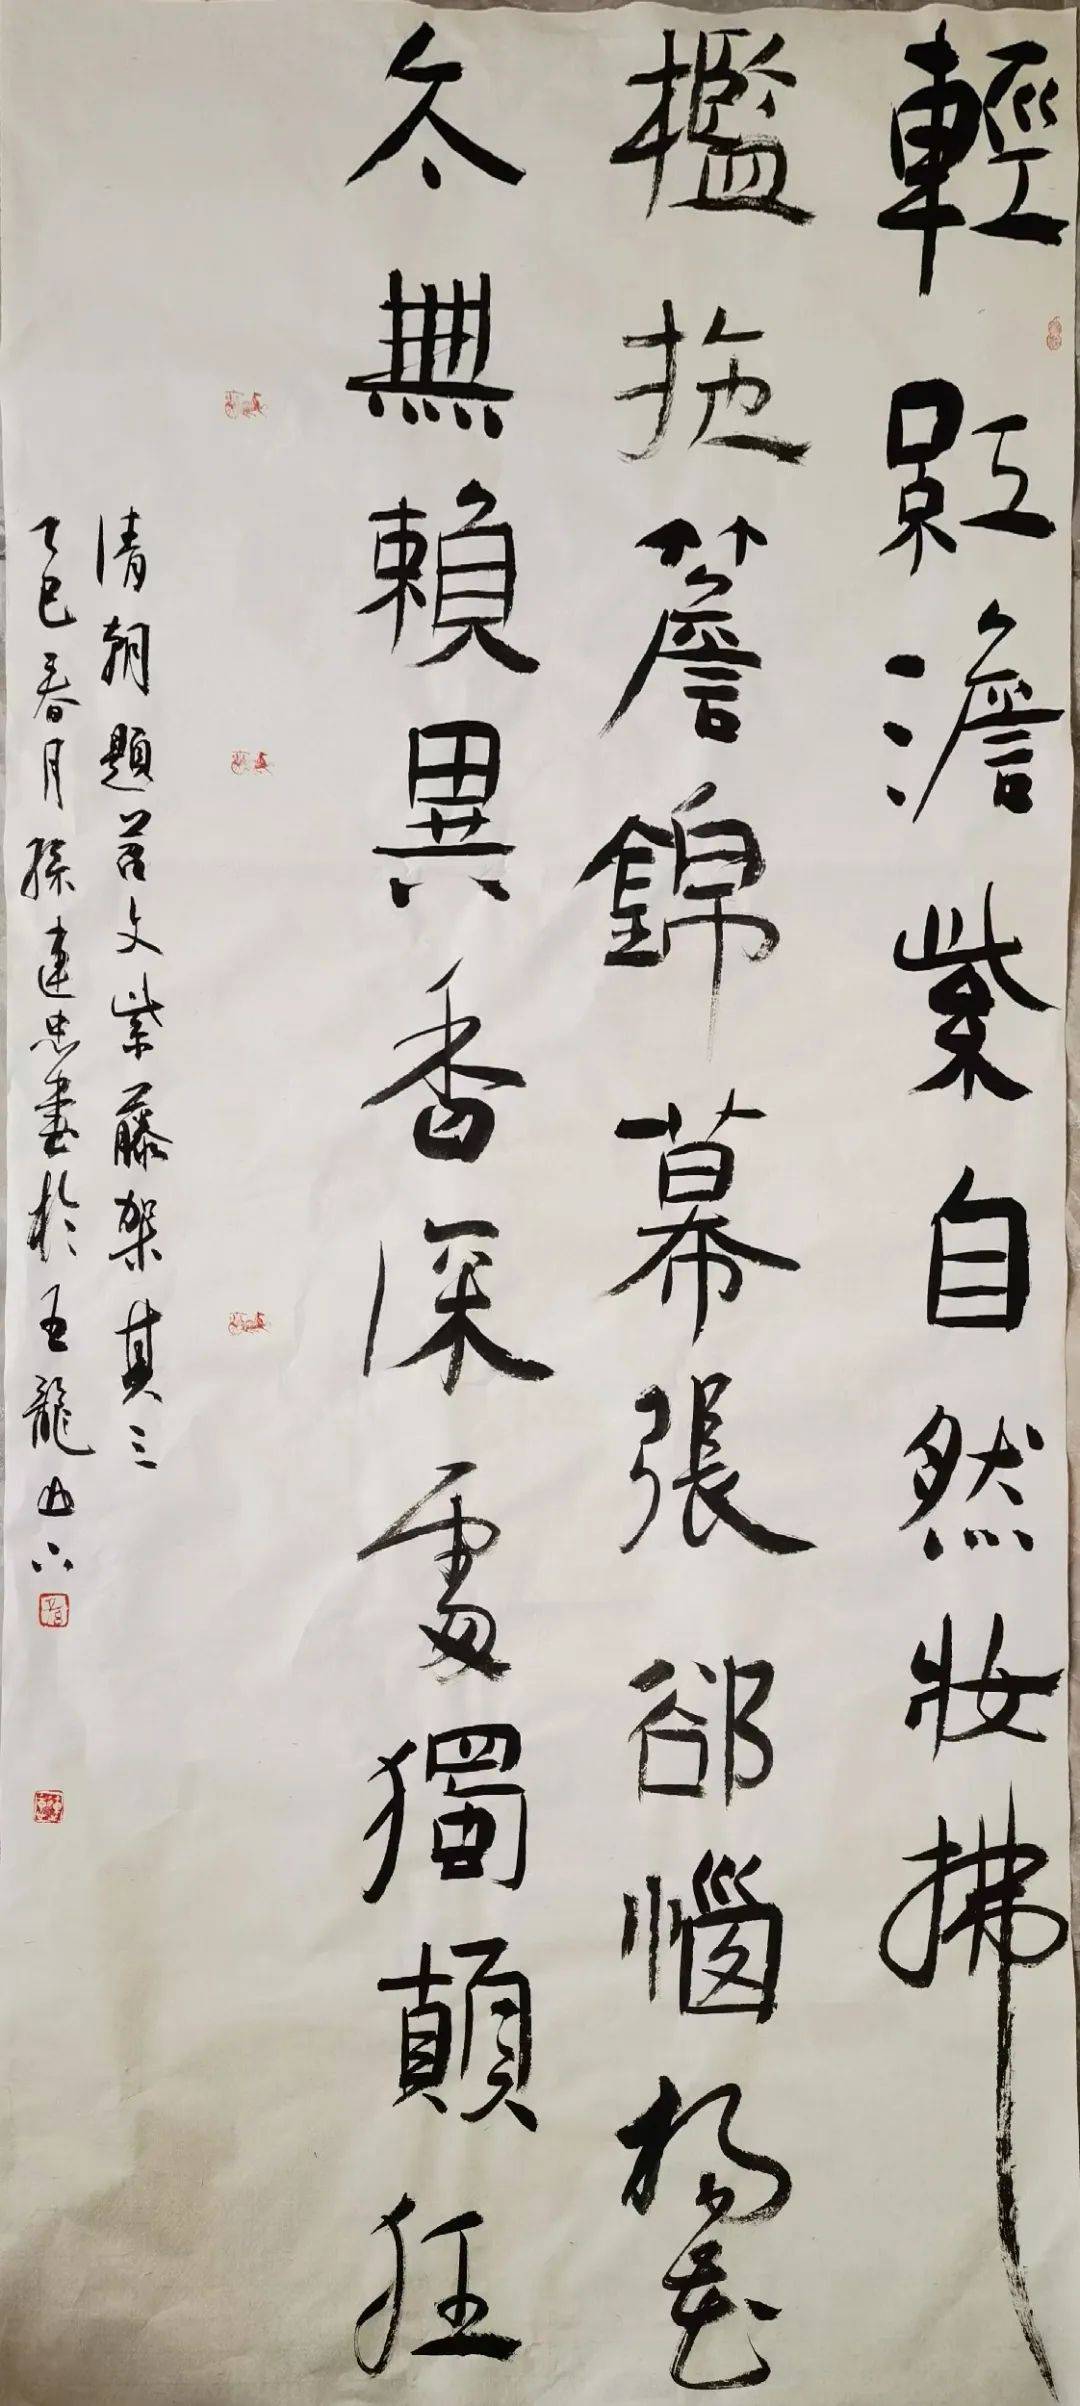 輕紅澹紫自然妝拂
檻拖簷錦幕張卻惱楊花
太無賴異香深處獨顛狂
清朝題苕文紫藤架其三
乙巳春月孫建忠書於玉龍山下